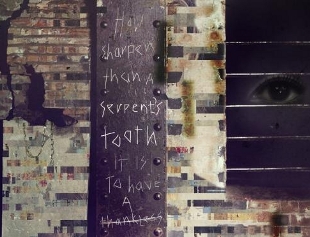 How
sharper
than A
serpent's
tooth
IT is
To have
A
thankless